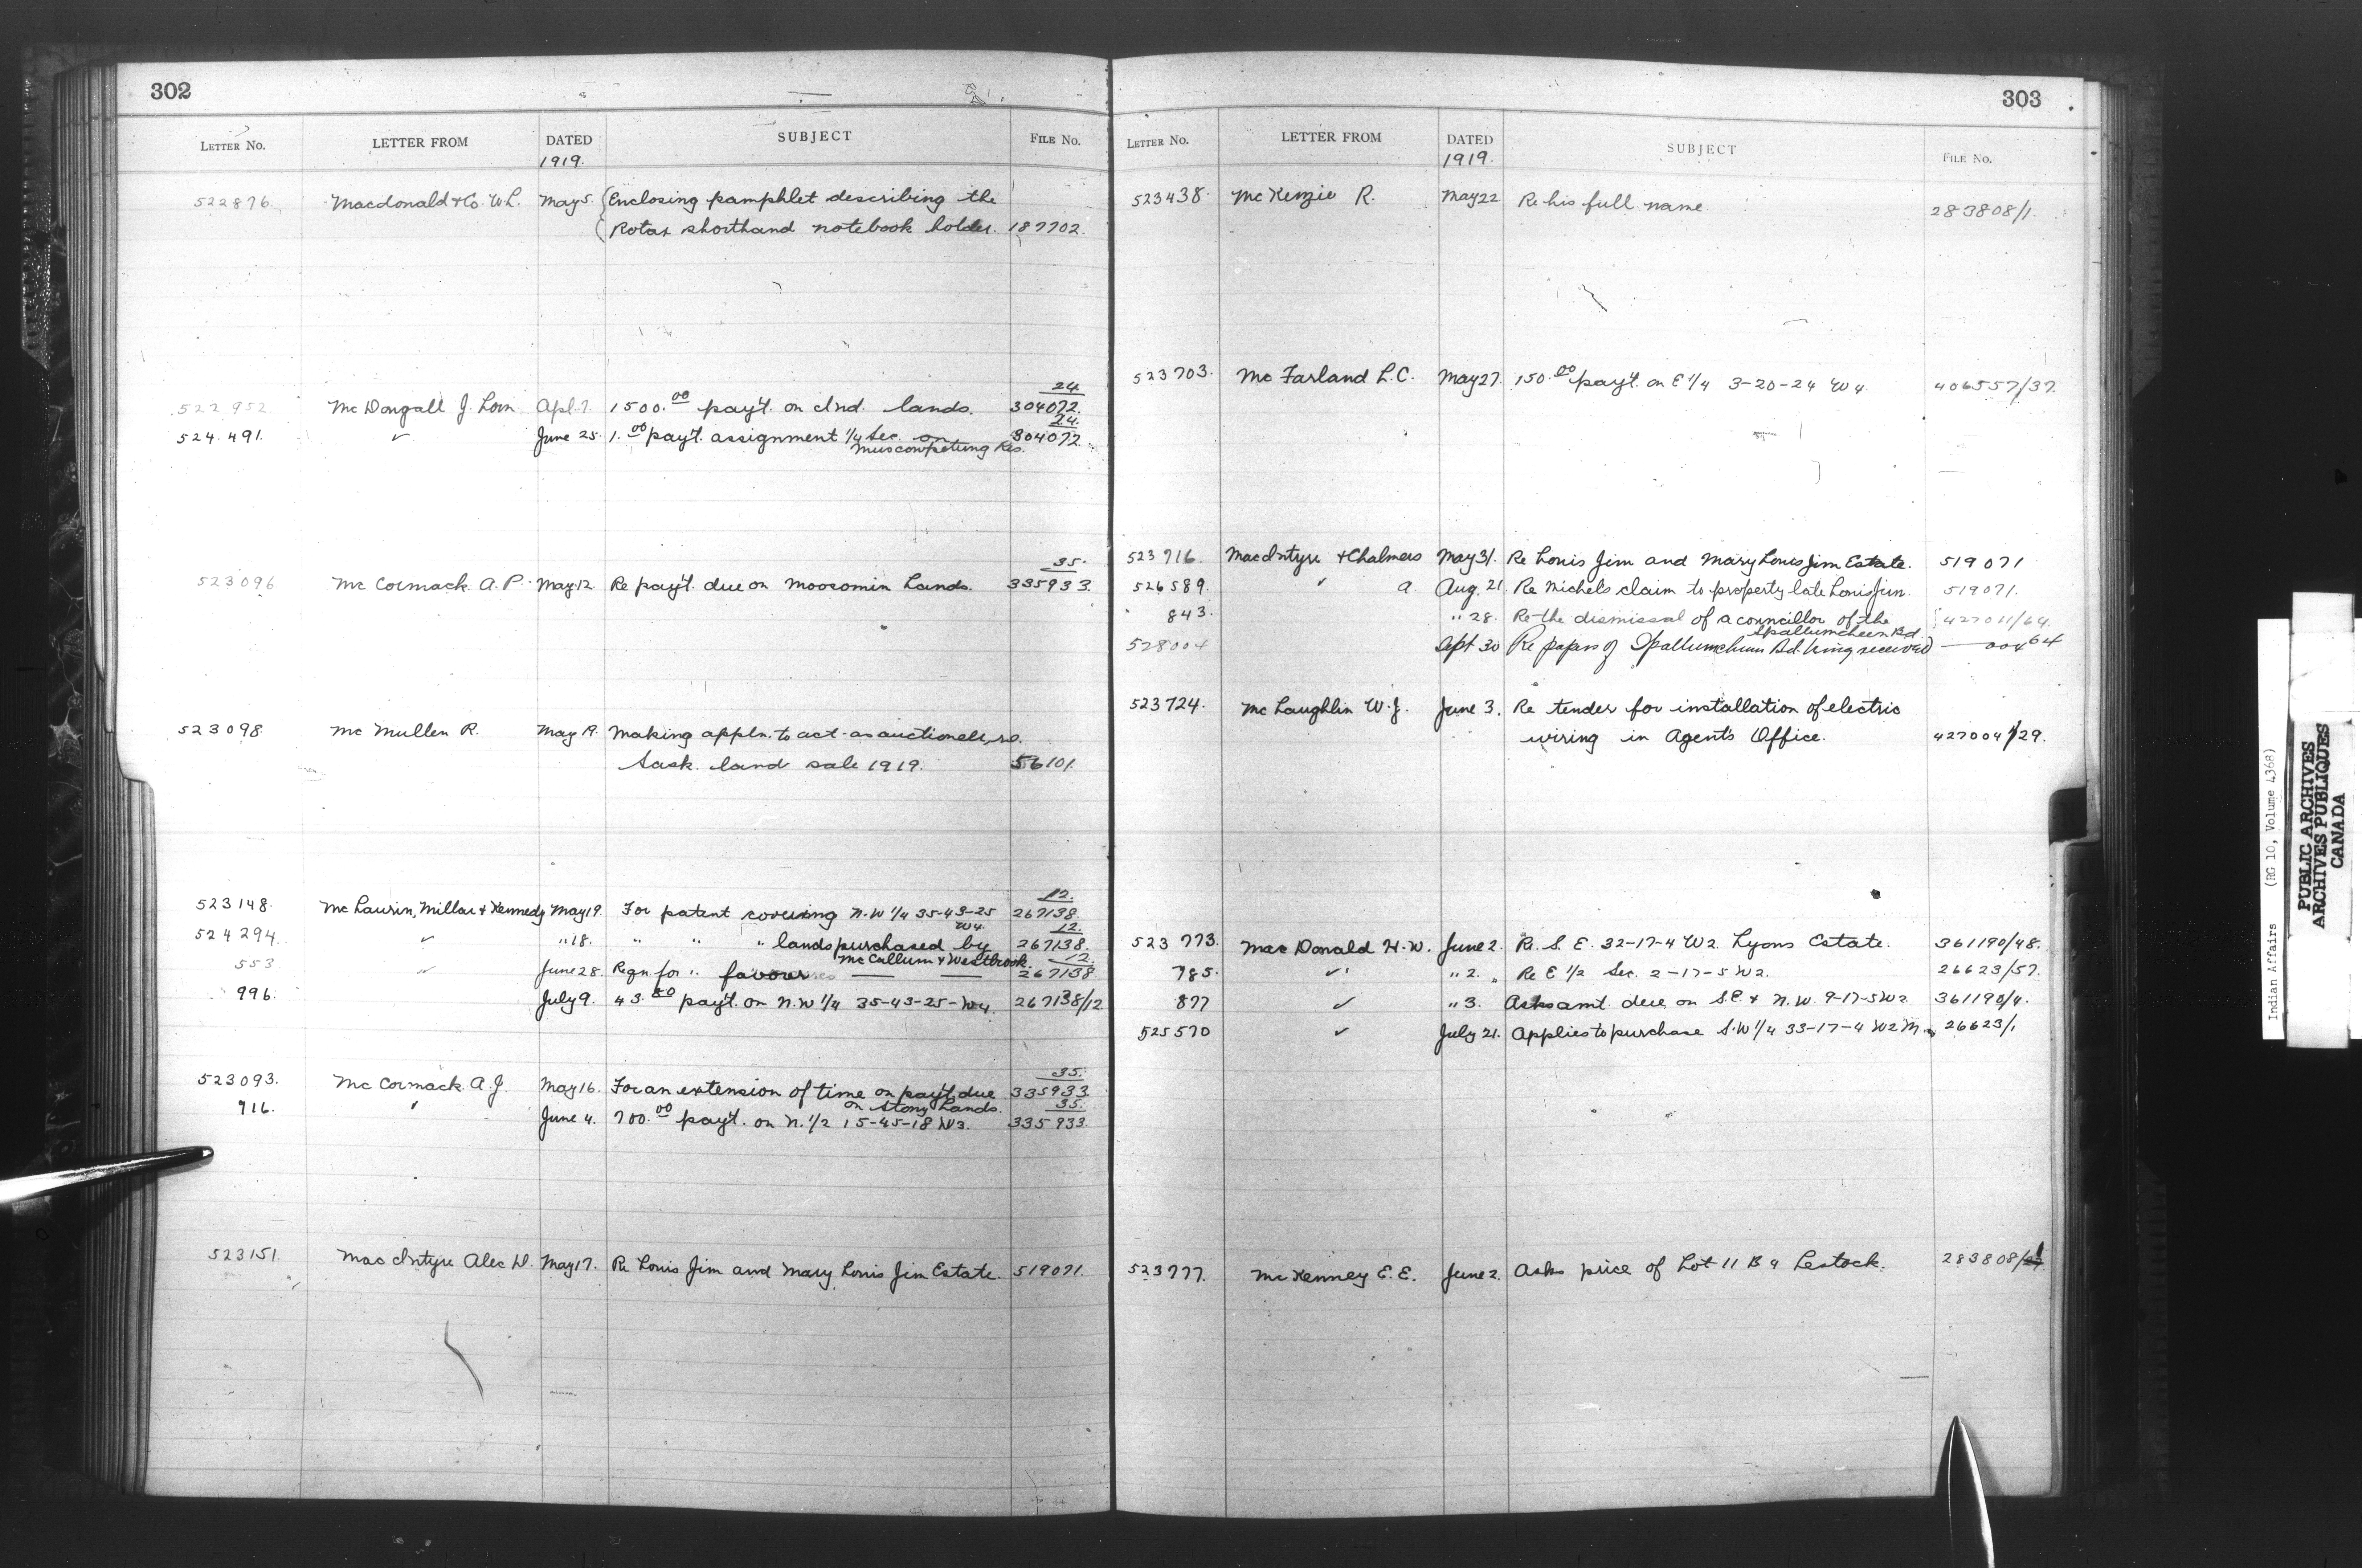 302
LETTER No. LETTER FROM DATED SUBJECT FILE No.
1919.
522876. Macdonald & Co. W.L. May 5. Enclosing pamphlet describing the
Rotax shorthand notebook holder. 187702.
24
522952 McDougall J. Lorn Apl. 7. 1500.00 pay't. on Ind. lands. 304072.
24.
524491. ✓ June 25. 1.00 pay't. assignment 1/4 Sec. on 304072.
Muscowpetung Res.
35.
523096 McCormack A.P. May 12. Re pay't. due on Moosomin Lands. 335933.
523098 McMullen R. May 19. Making appln. to act as auctioneer, re.
Sask. land sale 1919. 56101.
12.
523148. McLaurin, Millar & Kennedy May 19. For patent covering N.W 1/4 35-43-25 267138.
W4. 12.
524294. ✓ " 18. " " " lands purchased by 267138.
McCallum & Westbrook. 12.
553 ✓ June 28. Reqn. for " favour 267138
996. July 9. 43.80 pay't. on N.W 1/4 35-43-25-W4. 267138/12
35.
523093. McCormack A.J. May 16. For an extension of time on pay't. due 335933
on Stony Lands. 35.
916. ✓ June 4. 700.00 pay't. on N. 1/2 15-45-18 W3. 335933.
523151. MacIntyre Alec D. May 17. Re Louis Jim and Mary Louis Jim Estate. 519071.
303
LETTER No. LETTER FROM DATED SUBJECT FILE No.
1919.
523438. McKenzie R. May 22 Re his full name. 283808/1.
523703. McFarland L.C. May 27. 150.00 pay't. on E 1/4 3-20-24 W4. 406557/37.
523716. MacIntyre & Chalmers May 31. Re Louis Jim and Mary Louis Jim Estate. 519071
526589. " a. Aug. 21. Re Michel's claim to property late Louis Jim. 519071.
843. " 28. Re the dismissal of a councillor of the 427011/64.
Spallumcheen Bd.
528004 Sept 30 Re papers of Spallumcheen Bd. being received — 004 64
523724. McLaughlin W.J. June 3. Re tender for installation of electric
wiring in Agent's Office. 427004/29.
523773. MacDonald H.W. June 2. Re. S.E. 32-17-4 W2. Lyons Estate. 361190/48.
785. ✓ " 2. Re E 1/2 Sec. 2-17-5 W2. 26623/57.
877 ✓ " 3. Asks amt. due on S.E. & N.W. 9-17-5 W2 361190/4.
525570 ✓ July 21. Applies to purchase S.W 1/4 33-17-4 W2 M. 26623/1
523777. McKenney E.E. June 2. Asks price of Lot 11 B 4 Lestock. 283808/
Indian Affairs (RG 10, Volume 4368)
PUBLIC ARCHIVES
ARCHIVES PUBLIQUES
CANADA